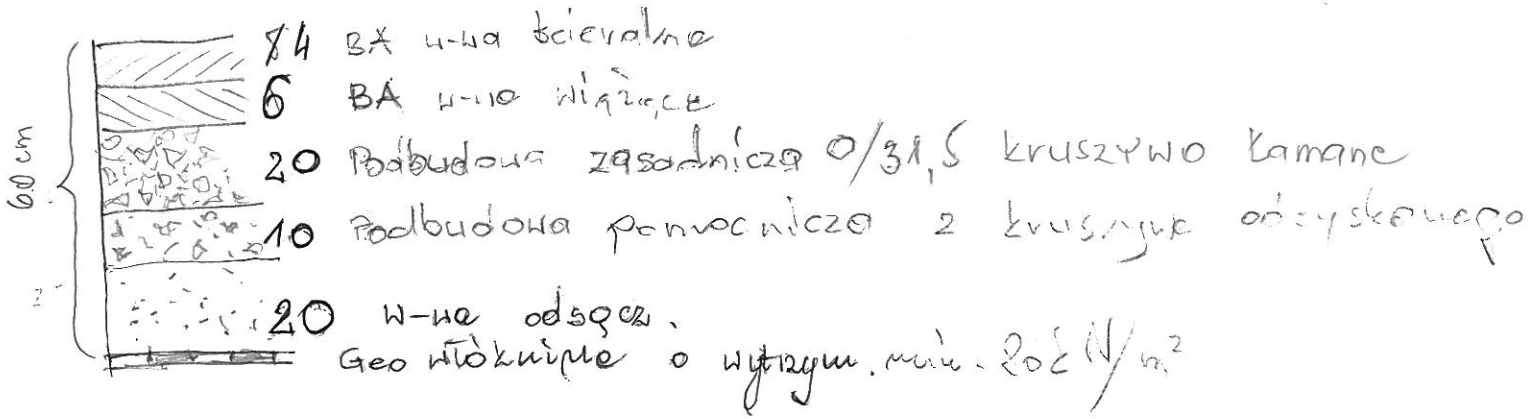 4 BA w-wa ścieralna
6 BA w-wa wiążące
20 Podbudowa zasadnicza 0/31,5 kruszywo łamane
10 Podbudowa pomocnicza z kruszyw odzyskanego
20 w-wa odsącz.
Geo włóknina o wytrzym. min. N/m²
60 cm